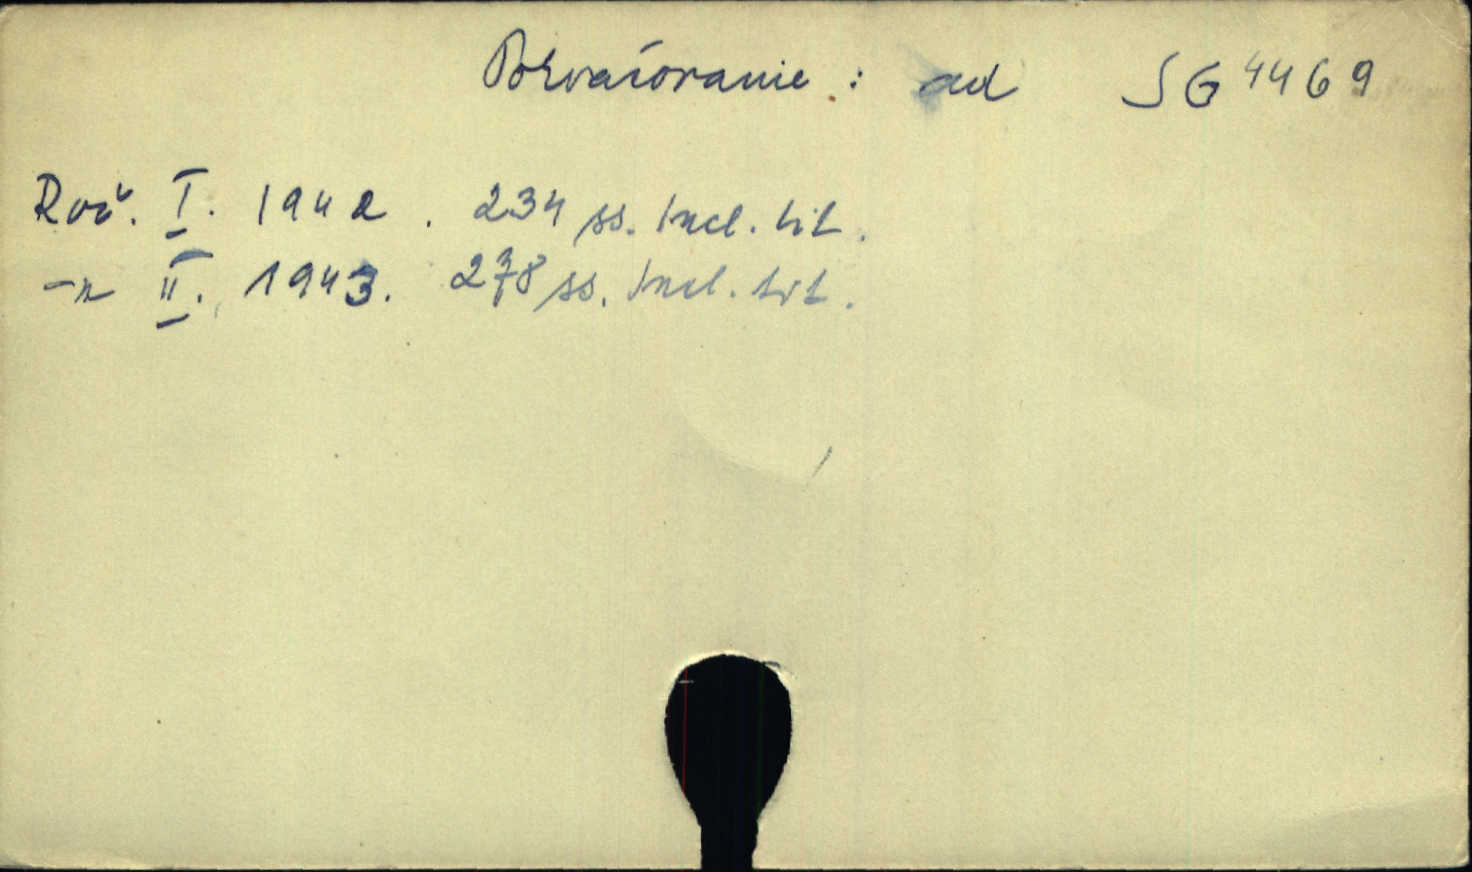 Pokračovanie : ad SG 4469
Roč. I. 1942. 234 ss. Incl. tit.
-"- II. 1943. 278 ss. Incl. tit.